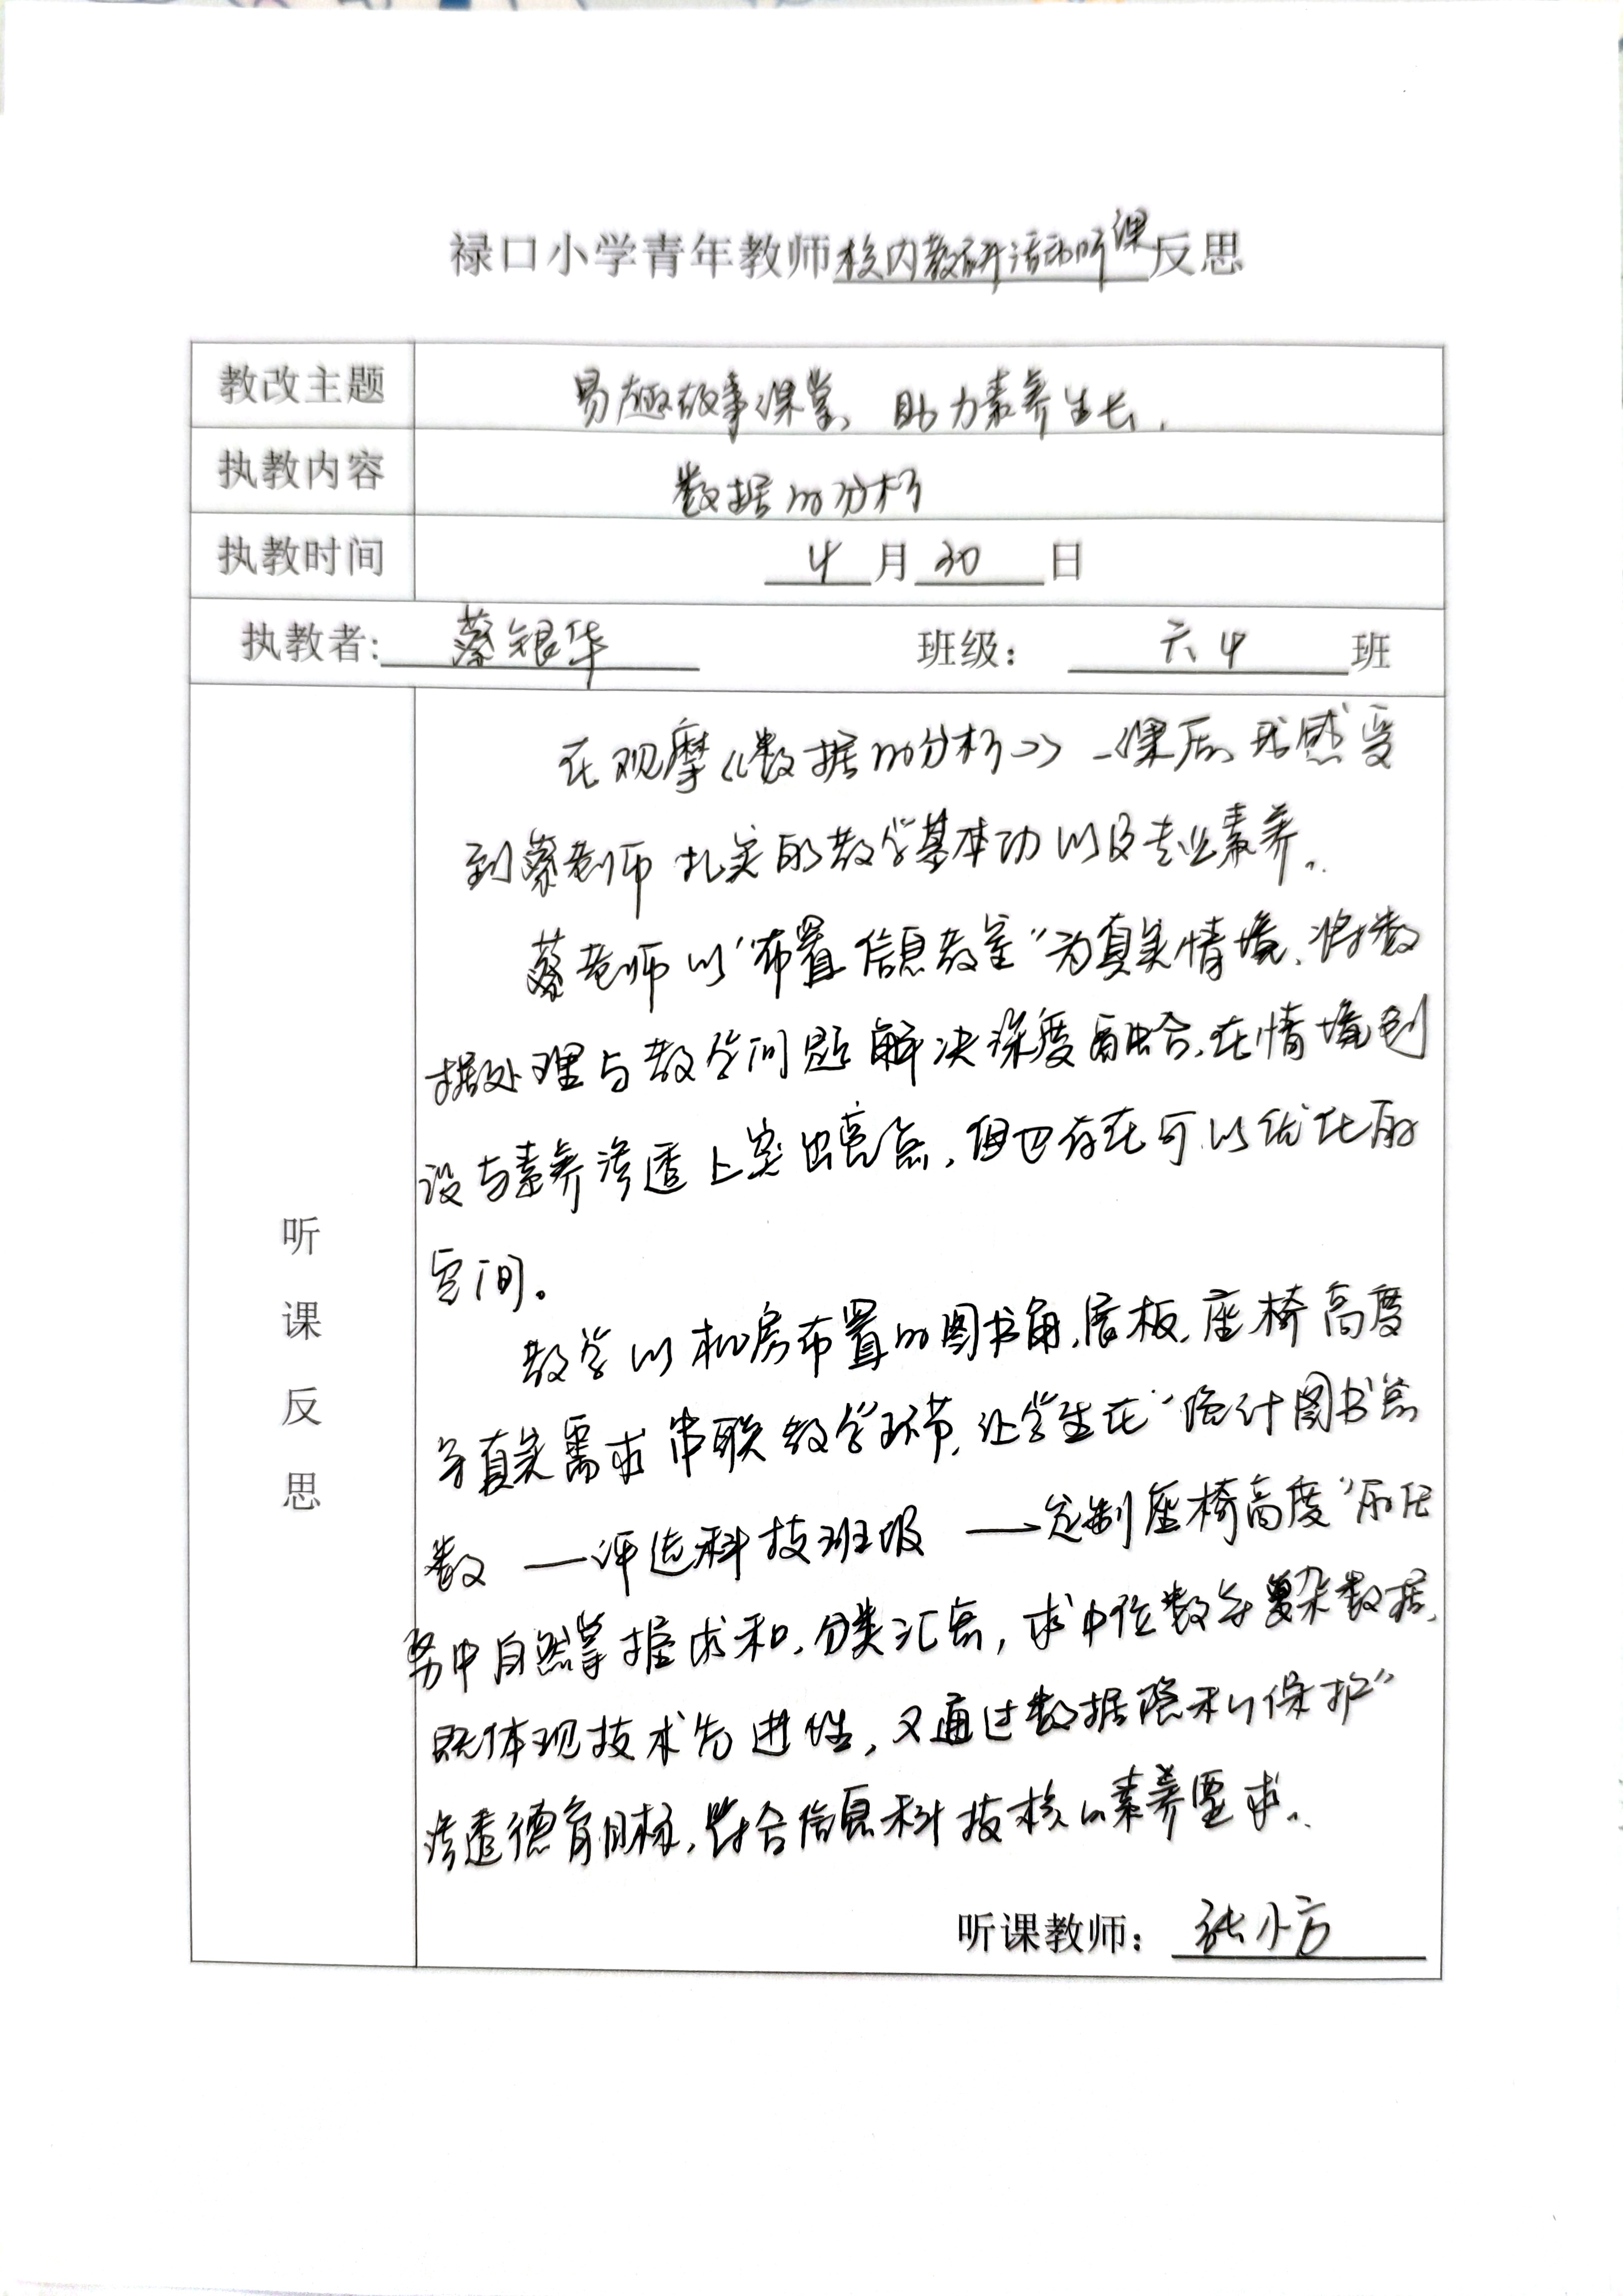 禄口小学青年教师校内教研活动听课反思
教改主题 易趣故事课堂、助力素养生长.
执教内容 数据的分析
执教时间 4月30日
执教者: 蔡银华 班级: 六4班
听课反思
在观摩《数据的分析》一课后,我感受
到蔡老师扎实的教学基本功以及专业素养。
蔡老师以“布置信息教室”为真实情境,将数
据处理与教学问题解决深度融合,在情境创
设与素养渗透上突出亮点,但也存在可以优化的
空间。
教学以机房布置的图书角、展板、座椅高度
等真实需求串联教学环节,让学生在“统计图书总
数——评选科技班级——定制座椅高度”的任
务中自然掌握求和、分类汇总,求中位数等复杂数据,
既体现技术先进性,又通过数据隐私保护”
渗透德育目标,符合信息科技核心素养要求。
听课教师: 张小方